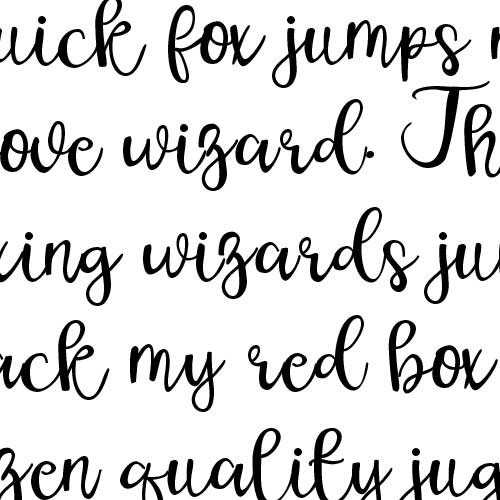 uick fox jumps
ove wizard. Th
xing wizards ju
ack my red box
zen quality jug